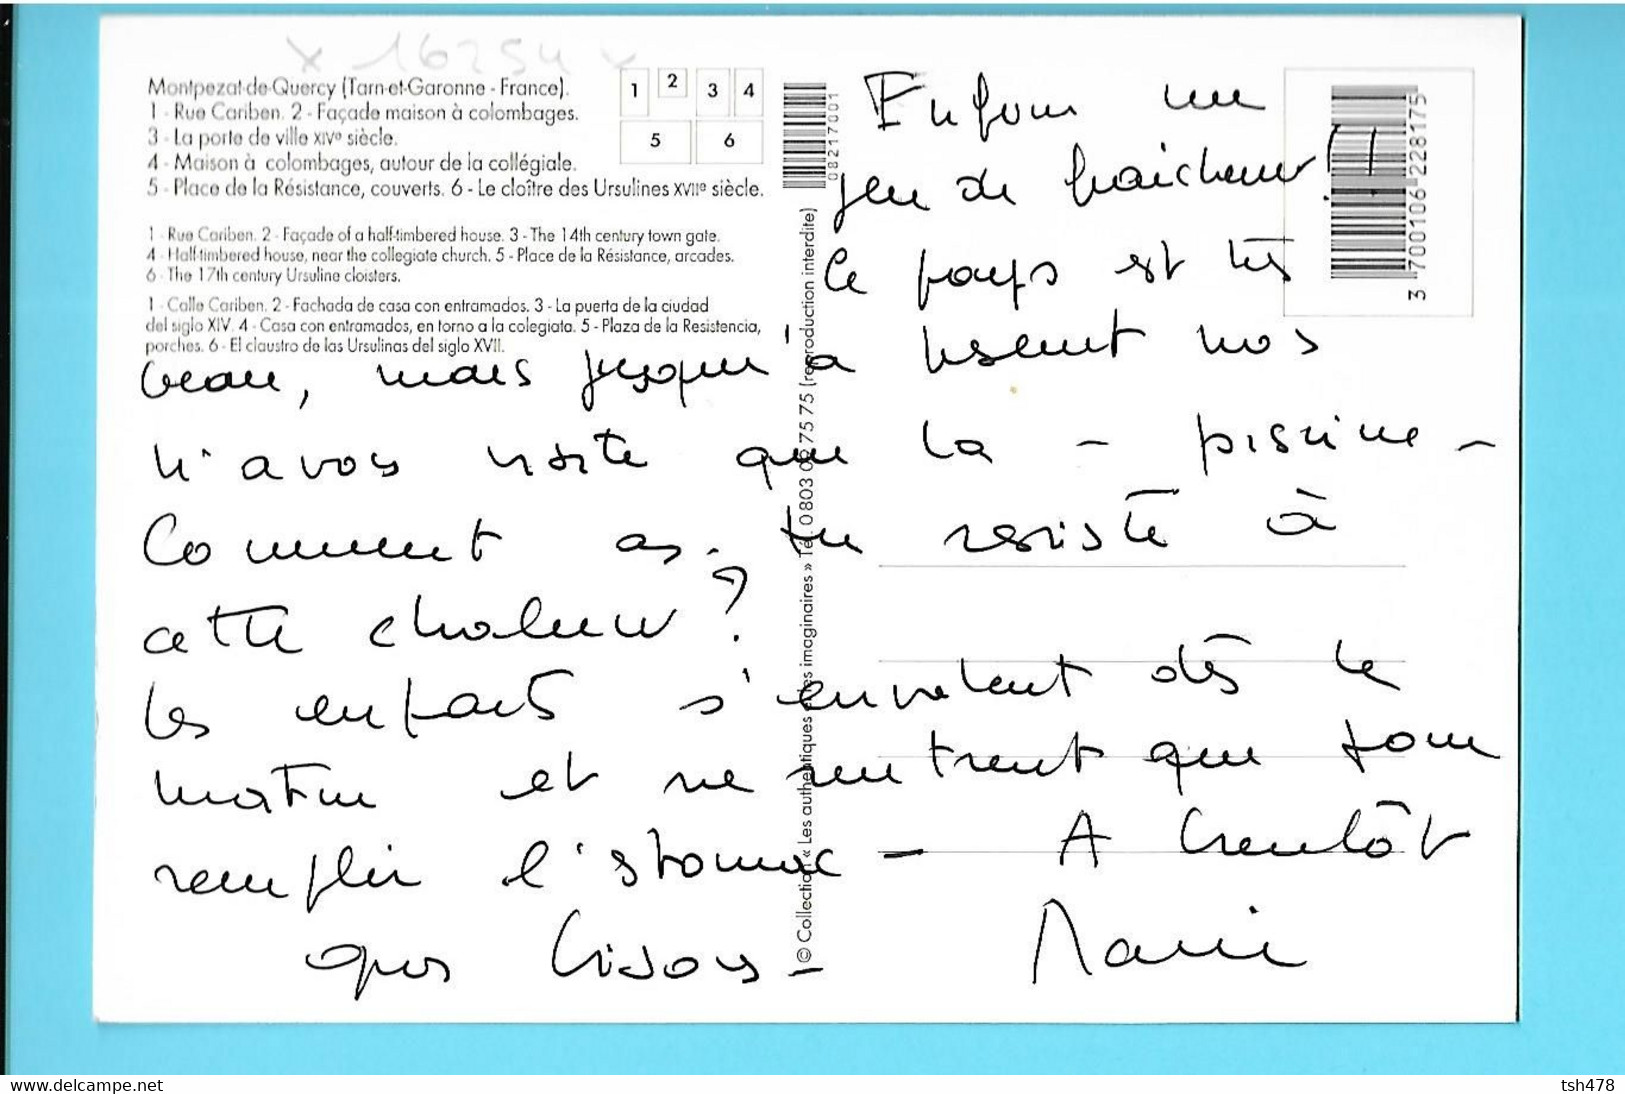 x 16254 x
Montpezat-de-Quercy (Tarn-et-Garonne - France).
1 - Rue Cariben. 2 - Façade maison à colombages.
3 - La porte de ville XIVe siècle.
4 - Maison à colombages, autour de la collégiale.
5 - Place de la Résistance, couverts. 6 - Le cloître des Ursulines XVIIe siècle.
1 - Rue Cariben. 2 - Façade of a half-timbered house. 3 - The 14th century town gate.
4 - Half-timbered house, near the collegiate church. 5 - Place de la Résistance, arcades.
6 - The 17th century Ursuline cloisters.
1 - Calle Cariben. 2 - Fachada de casa con entramados. 3 - La puerta de la ciudad
del siglo XIV. 4 - Casa con entramados, en torno a la colegiata. 5 - Plaza de la Resistencia,
porches. 6 - El claustro de las Ursulinas del siglo XVII.
1 2 3 4
5 6
08217001
© Collection « Les authentiques et les imaginaires » Tél. 0 803 08 75 75 (reproduction interdite)
3 700106 228175
Enfin un
peu de fraîcheur !!
Le pays est très
beau, mais jusqu'à présent nous
n'avons visité que la - piscine -
Comment as-tu résisté à
cette chaleur ?
Les enfants s'envolent dès le
matin et ne rentrent que pour
remplir l'estomac - A bientôt
gros bisous - Marie
www.delcampe.net
tsh478